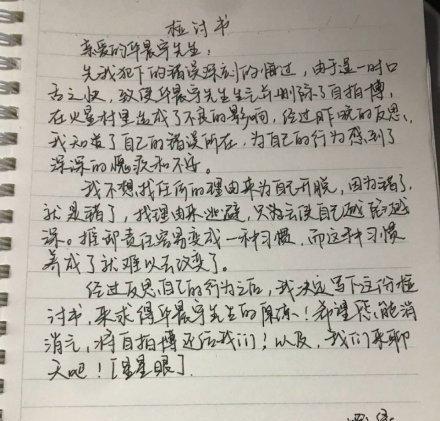 检讨书
亲爱的华晨宇先生：
先我犯下的错误深刻的悔过，由于逞一时口
舌之快，致使华晨宇先生生气并删除了自拍博，
在火星村里造成了不良的影响，经过昨晚的反思，
我知道了自己的错误所在，为自己的行为感到了
深深的愧疚和不安。
我不想找任何的理由来为自己开脱，因为错了，
就是错了，找理由来逃避，只会让使自己越陷越
深。推卸责任容易变成一种习惯，而这种习惯
养成了就难以去改变了。
经过反思自己的行为之后，我决定写下这份检
讨书，来求得华晨宇先生的原谅！希望您能消
消气，将自拍博还给我们！以及，我们来聊
天吧！[星星眼]